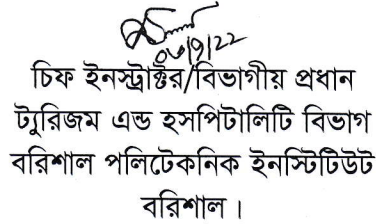 ০৬/৯/২২
চিফ ইনস্ট্রাক্টর/বিভাগীয় প্রধান
ট্যুরিজম এন্ড হসপিটালিটি বিভাগ
বরিশাল পলিটেকনিক ইনস্টিটিউট
বরিশাল।